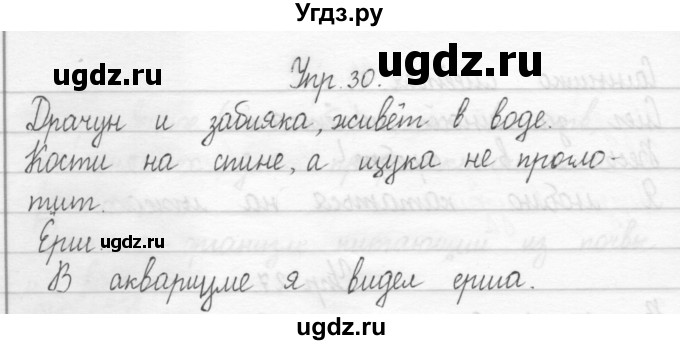 Угдз.ру
ugdz.ru
Упр. 30.
ugdz.ru
Драчун и забияка, живёт в воде.
ugdz.ru
Кости на спине, а щука не прогло-
тит.
Ёрш ugdz.ru
В аквариуме я видел ерша.
ugdz.ru